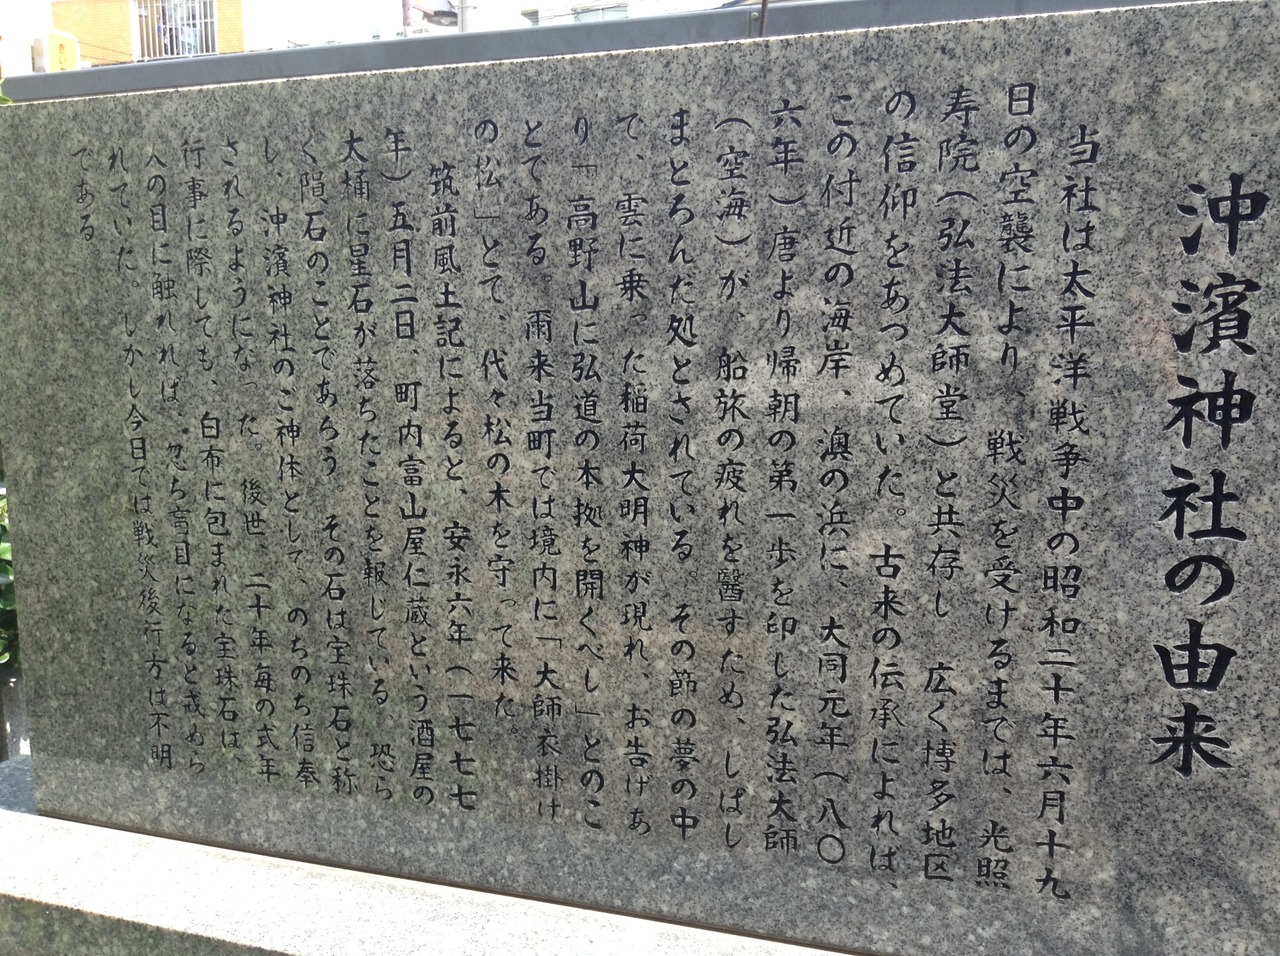 沖濱神社の由来
当社は太平洋戦争中の昭和二十年六月十九
日の空襲により、戦災を受けるまでは、光照
寿院（弘法大師堂）と共存し 広く博多地区
の信仰をあつめていた。古来の伝承によれば、
この付近の海岸、澳の浜に、大同元年（八〇
六年）唐より帰朝の第一歩を印した弘法大師
（空海）が、船旅の疲れを醫すため、しばし
まとろんだ処とされている。その節の夢の中
て、雲に乗った稲荷大明神が現れ、お告げあ
り「高野山に弘道の本拠を開くべし」とのこ
とてある。爾来当町では境内に「大師衣掛け
の松」とて、代々松の木を守って来た。
筑前風土記によると、安永六年（一七七七
年）五月二日、町内富山屋仁蔵という酒屋の
大桶に星石が落ちたことを報じている。恐ら
く隕石のことであろう。その石は宝珠石と称
し、沖濱神社のご神体として、のちのち信奉
されるようになった。後世、二十年毎の式年
行事に際しても、白布に包まれた宝珠石は、
人の目に触れれば、忽ち盲目になると戒めら
れていた。しかし今日では戦災後行方は不明
である